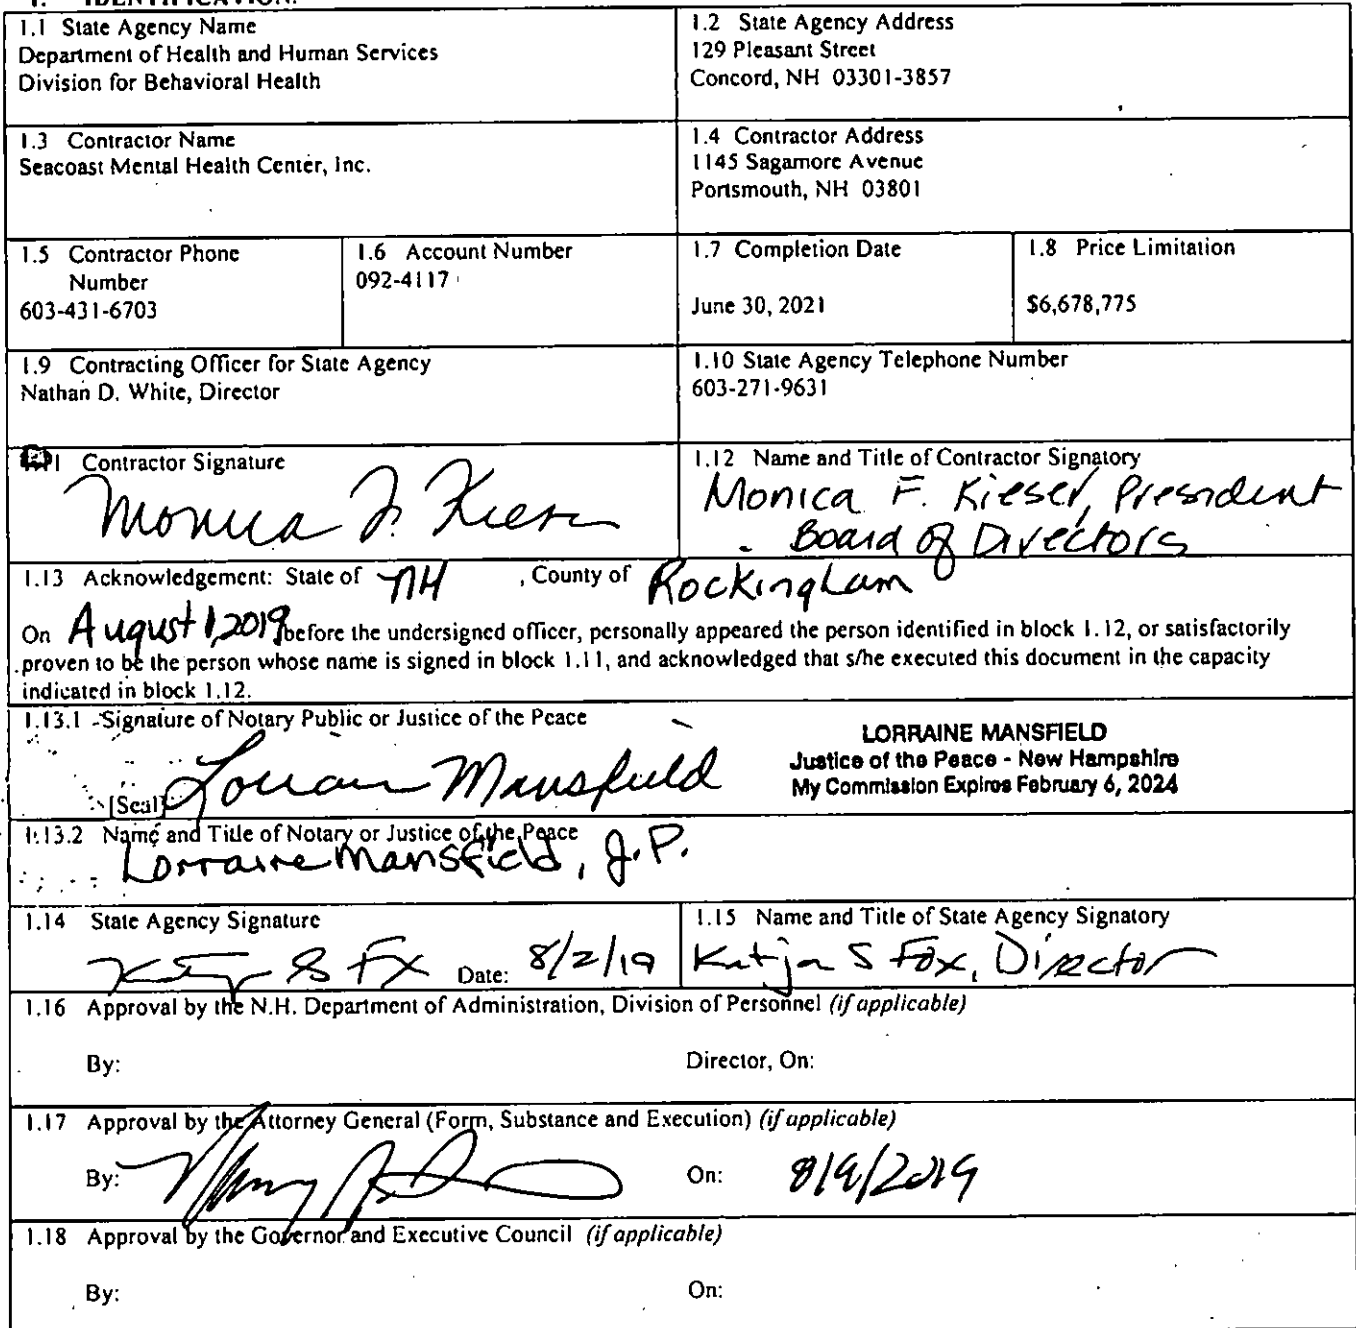 1. IDENTIFICATION.
1.1 State Agency Name
Department of Health and Human Services
Division for Behavioral Health
1.2 State Agency Address
129 Pleasant Street
Concord, NH 03301-3857
1.3 Contractor Name
Seacoast Mental Health Center, Inc.
1.4 Contractor Address
1145 Sagamore Avenue
Portsmouth, NH 03801
1.5 Contractor Phone
Number
603-431-6703
1.6 Account Number
092-4117
1.7 Completion Date
June 30, 2021
1.8 Price Limitation
$6,678,775
1.9 Contracting Officer for State Agency
Nathan D. White, Director
1.10 State Agency Telephone Number
603-271-9631
Contractor Signature
Monica F. Kieser
1.12 Name and Title of Contractor Signatory
Monica F. Kieser, President
Board of Directors
1.13 Acknowledgement: State of NH , County of Rockingham
On August 1, 2019 before the undersigned officer, personally appeared the person identified in block 1.12, or satisfactorily
proven to be the person whose name is signed in block 1.11, and acknowledged that s/he executed this document in the capacity
indicated in block 1.12.
1.13.1 Signature of Notary Public or Justice of the Peace
LORRAINE MANSFIELD
Justice of the Peace - New Hampshire
My Commission Expires February 6, 2024
[Seal] Lorraine Mansfield
1.13.2 Name and Title of Notary or Justice of the Peace
Lorraine Mansfield, J.P.
1.14 State Agency Signature
Date: 8/2/19
1.15 Name and Title of State Agency Signatory
Katja S Fox, Director
1.16 Approval by the N.H. Department of Administration, Division of Personnel (if applicable)
By: Director, On:
1.17 Approval by the Attorney General (Form, Substance and Execution) (if applicable)
By: On: 8/9/2019
1.18 Approval by the Governor and Executive Council (if applicable)
By: On: